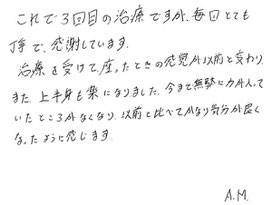 これで3回目の治療ですが、毎回とても
丁寧で、感謝しています。
治療を受けて、座ったときの感覚が以前と変わり、
また、上半身も楽になりました。今まで無駄に力が入って
いたところがなくなり、以前と比べてかなり気分が良く
なったように感じます。
A.M.